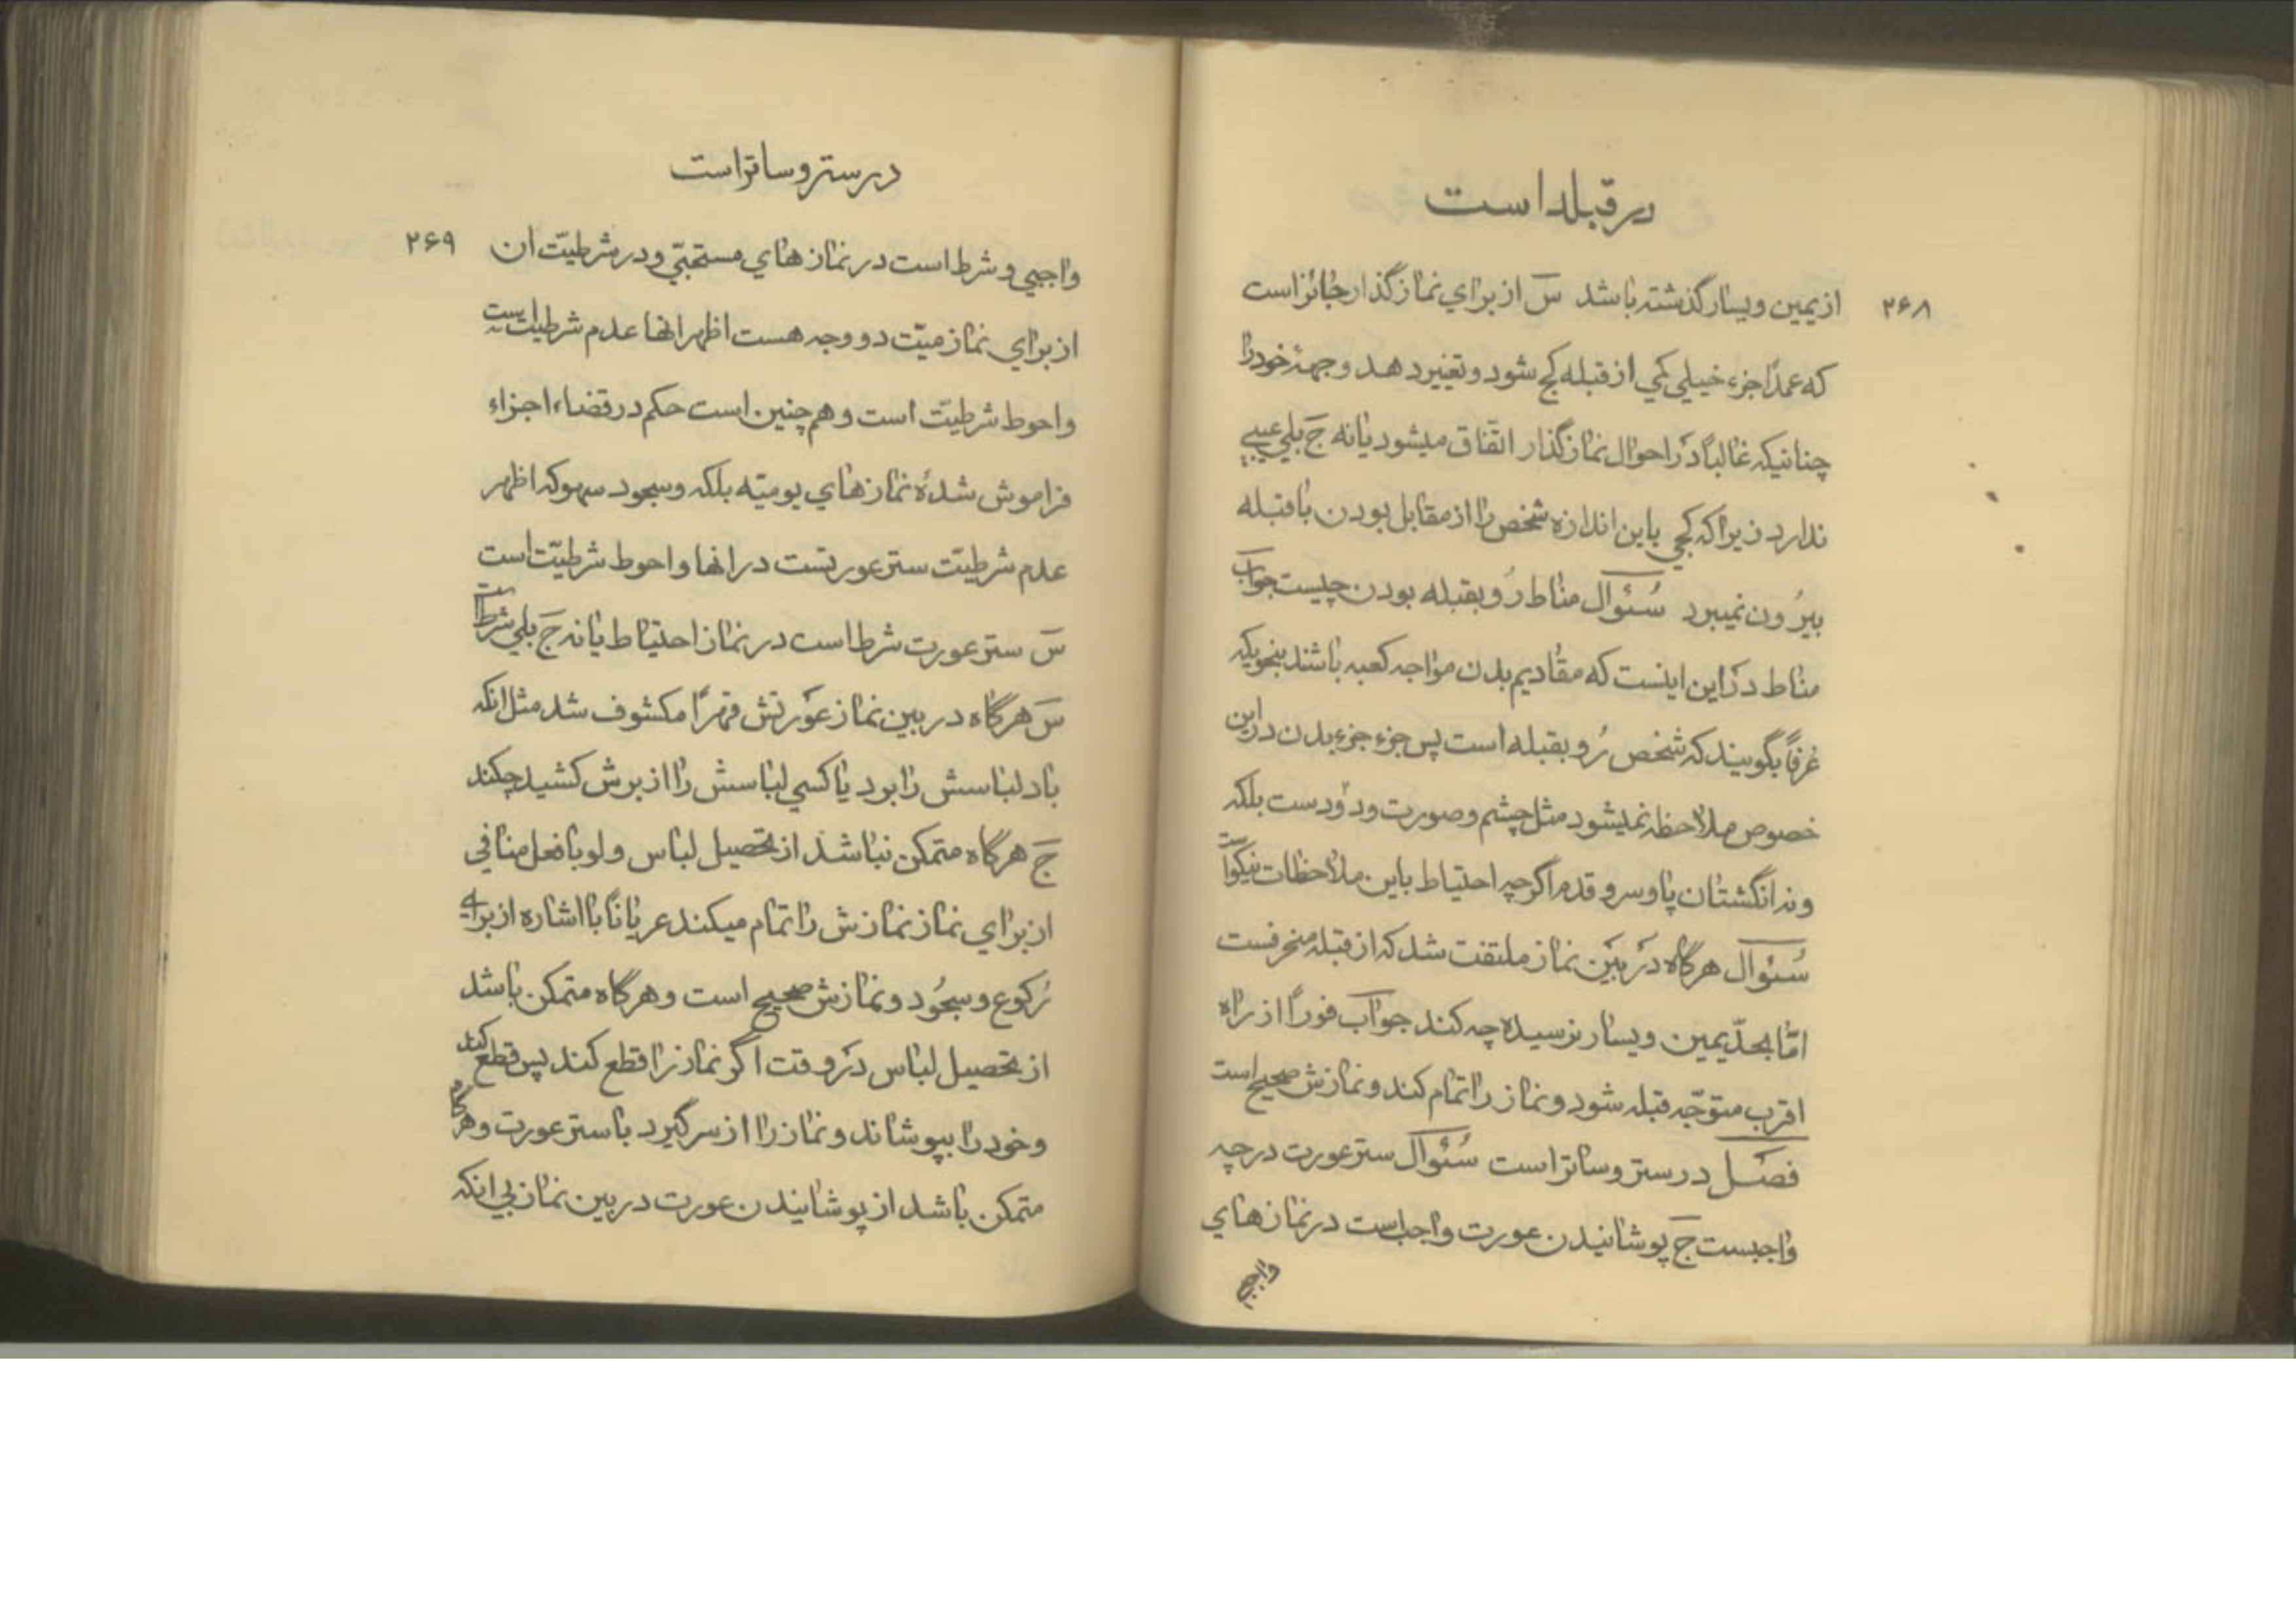 در قبله است
۲۶۸
از یمین و یسار گذشته باشد س از برای نماز گذار جائز است
که عمدًا جزء خیلی کمی از قبله کج شود و تغییر دهد وجههٔ خود را
چنانیکه غالباً در احوال نماز گذار اتّفاق میشود یا نه ج بلی عیبی
ندارد زیرا که کجی باین اندازه شخص را از مقابل بودن با قبله
بیرُون نمیبرد سُئوال مناط رُو بقبله بودن چیست جواب
مناط در این اینست که مقادیم بدن مواجه کعبه باشند بنحویکه
عُرفاً بگویند که شخص رُو بقبله است پس جزء جزء بدن در این
خصوص ملاحظه نمیشود مثل چشم و صورت و دو دست بلکه
ونه انگشتان پا و سر و قدم اگرچه احتیاط باین ملاحظات نیکوا ست
سُئوال هرگاه در بین نماز ملتفت شد که از قبله منحرفست
امّا بحدّ یمین و یسار نرسیده چه کند جواب فوراً از راه
اقرب متوجّه قبله شود و نماز را تمام کند و نمازش صحیح است
فصَل در ستر و ساتر است سُئوال ستر عورت در چه
واجبست ج پوشانیدن عورت واجب است در نماز های
واجبی
در ستر و ساتر است
۲۶۹
واجبی و شرط است در نماز های مستحبّی و در شرطیّت ان
از برای نماز میّت دو وجه هست اظهر انها عدم شرطیّت است
و احوط شرطیّت است و هم چنین است حکم در قضاء اجزاء
فراموش شدهٔ نماز های یومیّه بلکه و سجود سهو که اظهر
عدم شرطیّت ستر عورتست در انها و احوط شرطیّت است
س ستر عورت شرط است در نماز احتیاط یا نه ج بلی شرط است
س هرگاه در بین نماز عَورتش قهرًا مکشوف شد مثل انکه
باد لباسش را برد یا کسی لباسش را از برش کشید چکند
ج هرگاه متمکن نباشد از تحصیل لباس ولو با فعل منافی
از برای نماز نمازش را تمام میکند عریاناً با اشاره از برای
رُکوع و سجُود و نمازش صحیح است و هرگاه متمکن باشد
از تحصیل لباس در وقت اگر نماز را قطع کند پس قطع کند
و خود را بپوشاند و نماز را از سر گیرد با ستر عورت و هرگاه
متمکن باشد از پوشانیدن عورت در بین نماز بی انکه